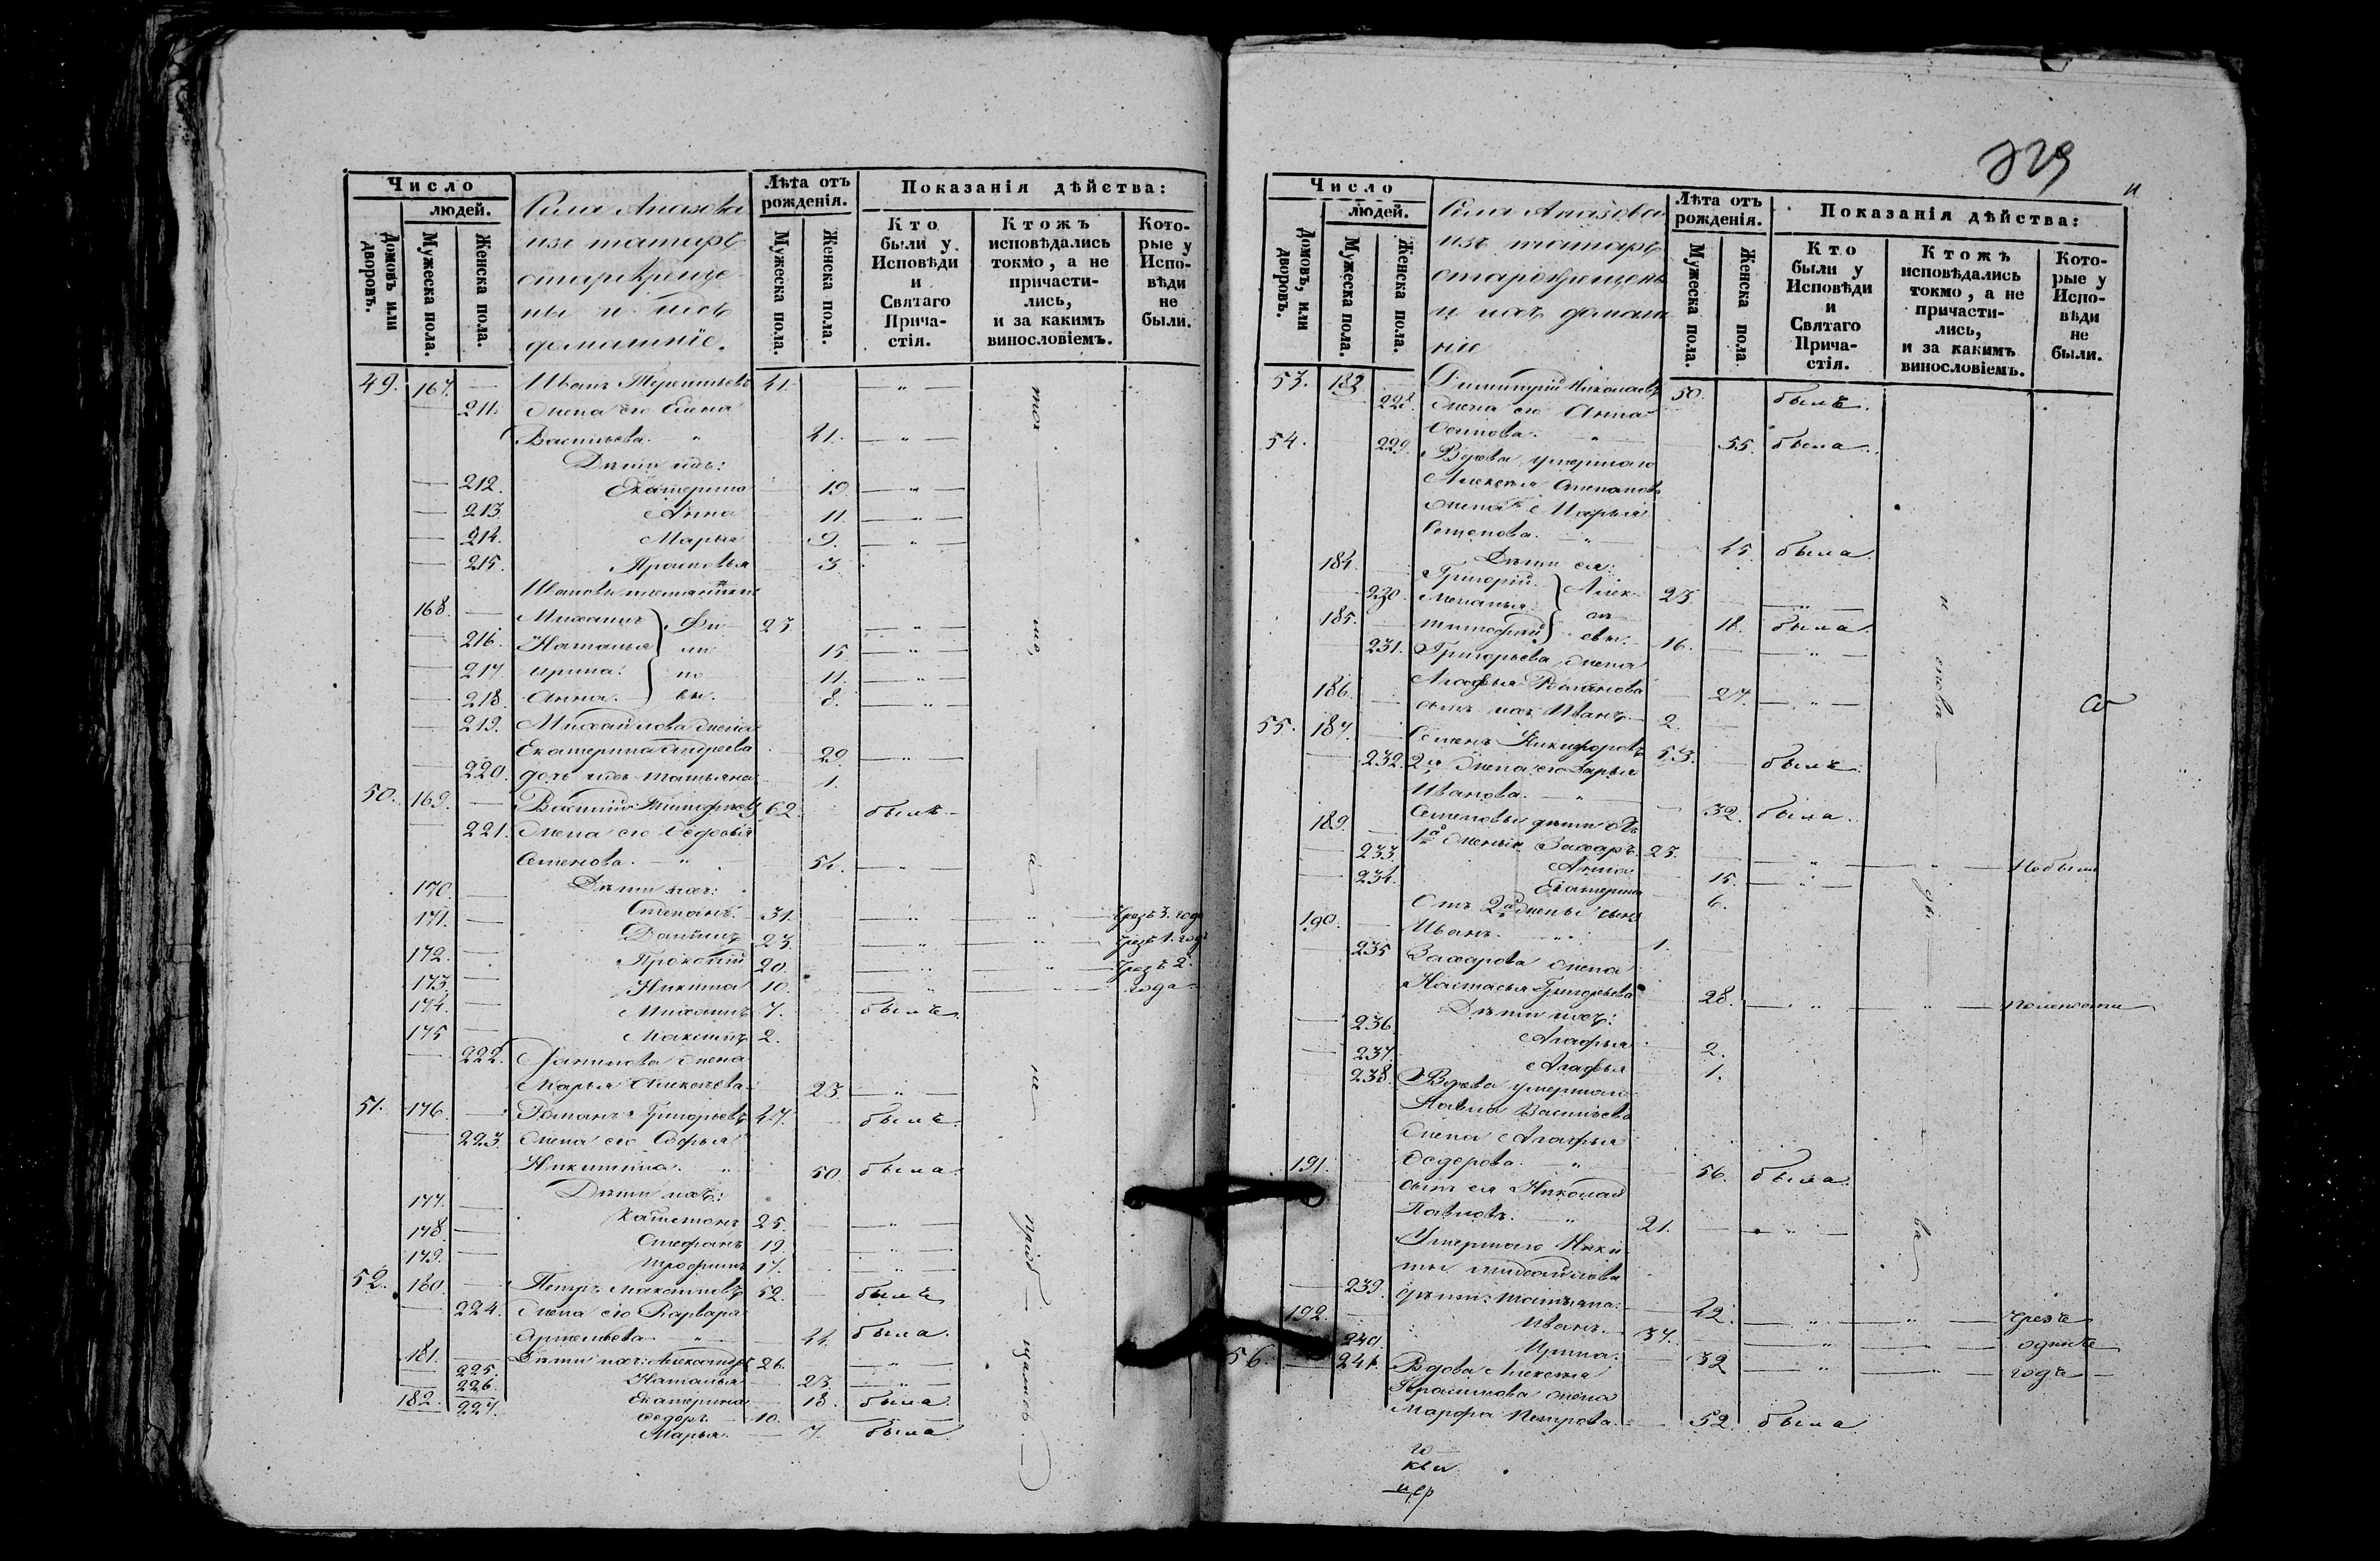 Число
людей.
Домовъ или дворовъ.
Мужеска пола.
Женска пола.
Села Апазова
изъ татаръ
старокреще-
ны и ихъ
домашніе.
Лѣта отъ рожденія.
Мужеска пола.
Женска пола.
Показанія дѣйства:
Кто были у Исповѣди и Святаго Прича-стія.
Ктожъ исповѣдались токмо, а не причасти-лись, и за какимъ винословіемъ.
Кото-рые у Испо-вѣди не были.
49. 167. — Иванъ Терентьевъ 41. — " —
— 211. Жена его Елена
Васильева. " 41. — " —
Дѣти ихъ:
— 212. Екатерина 19. — " —
— 213. Анна 11. — " —
— 214. Марья 9. — " —
— 215. Прасковья 3.
Ивановы племянники
168. — Михаилъ Фи 23. — " —
— 216. Наталья ли 15. — " —
— 217 Ирина. по 11. — " —
— 218. Анна. вы. 8. — " —
— 219. Михайлова жена
Екатерина Андреева 29. — " —
— 220. дочь ихъ Татьяна 1.
50. 169. — Василій Тимофеевъ 62. былъ.
— 221. Жена его Ѳедосья
Семенова. — " — 54. — " —
Дѣти ихъ:
170. — Степанъ. 31. — " — " — чрезъ 3. года
171. — Даніилъ 23. — " — " — чрезъ 1. годъ
172. — Прокопій 20. — " — " — чрезъ 2.
173. — Никита 10. — " — года
174. — Михаилъ 7. былъ.
175 — Максимъ 2.
— 222. Данилова жена
Марья Алексѣева. 23. — " —
51. 176. — Романъ Григорьевъ 47. былъ.
— 223. Жена его Софья
Никитина. " 50. была.
Дѣти ихъ:
177. — 25. — " —
178. — Стефанъ 19. — " —
179. — Трофимъ 17. — " —
52. 180. — Петръ Максимовъ 52. — былъ
— 224. Жена его Варвара
Артемьева. — " — 44. была.
181. — Дѣти ихъ: Александръ 26. — " —
— 225. Наталья 23. — " —
— 226. Екатерина 18. была.
182. Ѳедоръ. 10.
227. Марья. — 7. была
329
Число
людей.
Домовъ, или дворовъ.
Мужеска пола.
Женска пола.
Села Апазова
изъ татаръ
старокрещены
и ихъ домаш
ніе
Лѣта отъ рожденія.
Мужеска пола.
Женска пола
Показанія дѣйства:
Кто были у Исповѣди и Святаго Прича-стія.
Ктожъ исповѣдались токмо, а не причасти-лись, и за какимъ винословіемъ.
Кото-рые у Испо-вѣди не были.
53. 183 Димитрій Николаевъ 50. былъ.
228. Жена его Анна
Осипова. " 55. была.
54. 229. Вдова умершаго
Алексѣя Степанова
жена Марья
Семенова. " 45. была.
Дѣти ея:
184. Григорій. Алек 23. — " —
— 230. Меланья. сѣ 18. была.
185. Тимофей евы. 16. — " —
231. Григорьева жена
Агафья Романова 27. — " —
186. сынъ ихъ Иванъ. 2.
55. 187. Семенъ Никифоровъ 53. былъ.
232. 2я жена его Дарья
Иванова. — " — 32. была.
Семеновы дѣти отъ
189. 1й жены: Захаръ. 23. — " — " — Небыли
233. Анна 15. — " —
234. Екатерина 6.
Отъ 2й жены сынъ
190. Иванъ. 1.
235 Захарова жена
Настасья Григорьева 28. — " — " —
Дѣти ихъ:
236. Агафья 2.
237. Агафья 1.
238. Вдова умершаго
Павла Васильева
жена Агафья
Ѳедорова. " 56. была.
191. сынъ ея Николай
Павловъ. " 21. — " —
Умершаго Ники
ты Михайлова
239. дѣти: Татьяна. 42. — " — " — чрезъ
192. Иванъ. 37. — " — одинъ
240. Ирина. 32 — " — годъ
56. 241. Вдова Алексѣя
Герасимова жена
Марфа Петрова. 52. была